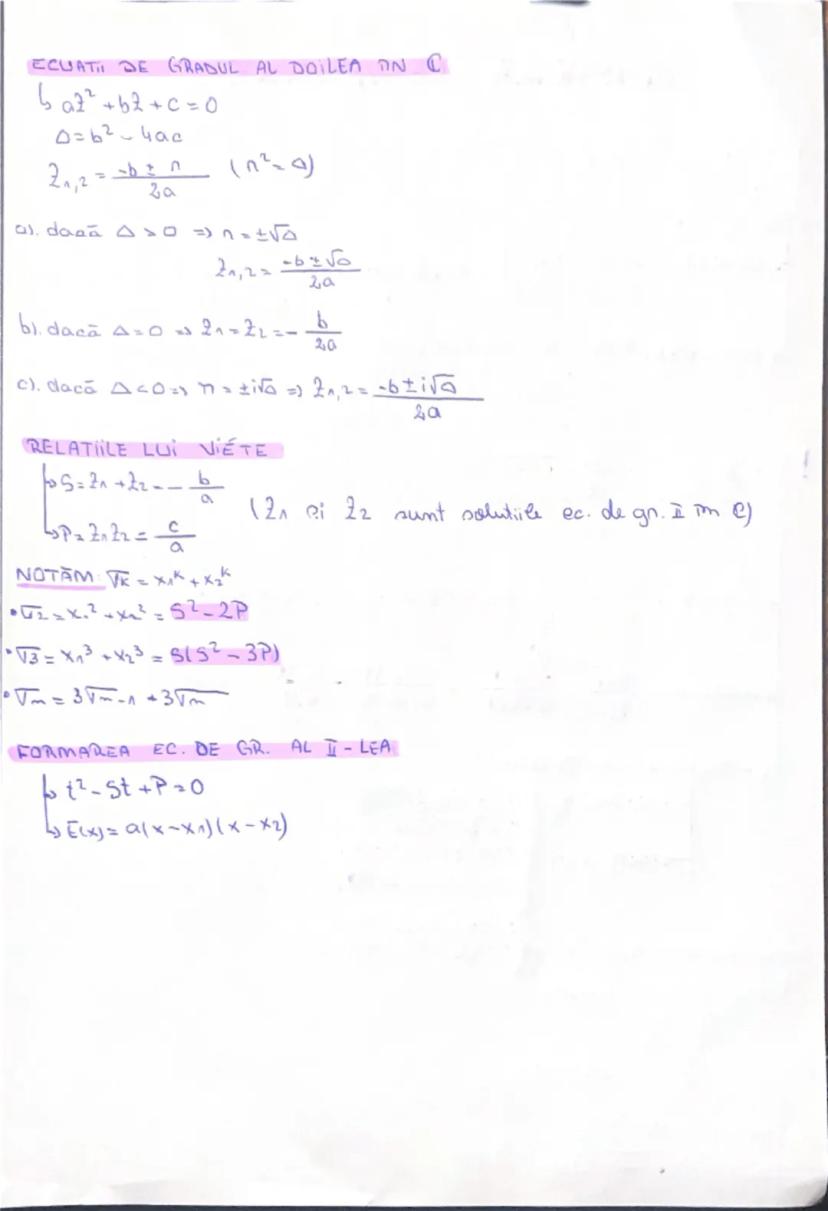 ECUATII DE GRADUL AL DOILEA ÎN ℂ
↳ az² + bz + c = 0
Δ = b² - 4ac
z₁,₂ = (-b ± r)/2a (r² = Δ)
a). dacă Δ > 0 => r = ±√Δ
z₁,₂ = (-b ± √Δ)/2a
b). dacă Δ = 0 => z₁ = z₂ = - b/2a
c). dacă Δ < 0 => r = ±i√Δ => z₁,₂ = (-b ± i√Δ)/2a
RELATIILE LUI VIÉTE
↳ S = z₁ + z₂ = - b/a
↳ P = z₁z₂ = c/a
(z₁ și z₂ sunt solutiile ec. de gr. II în ℂ)
NOTĂM: √k = x₁ᵏ + x₂ᵏ
• √2 = x₁² + x₂² = S² - 2P
• √3 = x₁³ + x₂³ = S(S² - 3P)
• √m = 3√m-1 + 3√m
FORMAREA EC. DE GR. AL II-LEA
↳ t² - St + P = 0
↳ E(x) = a(x - x₁)(x - x₂)